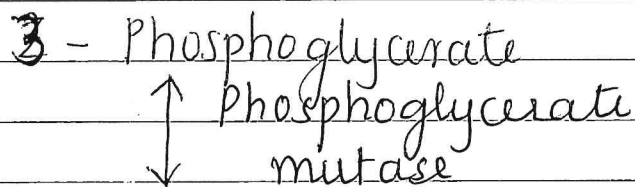 3 - Phosphoglycerate
Phosphoglycerate
mutase